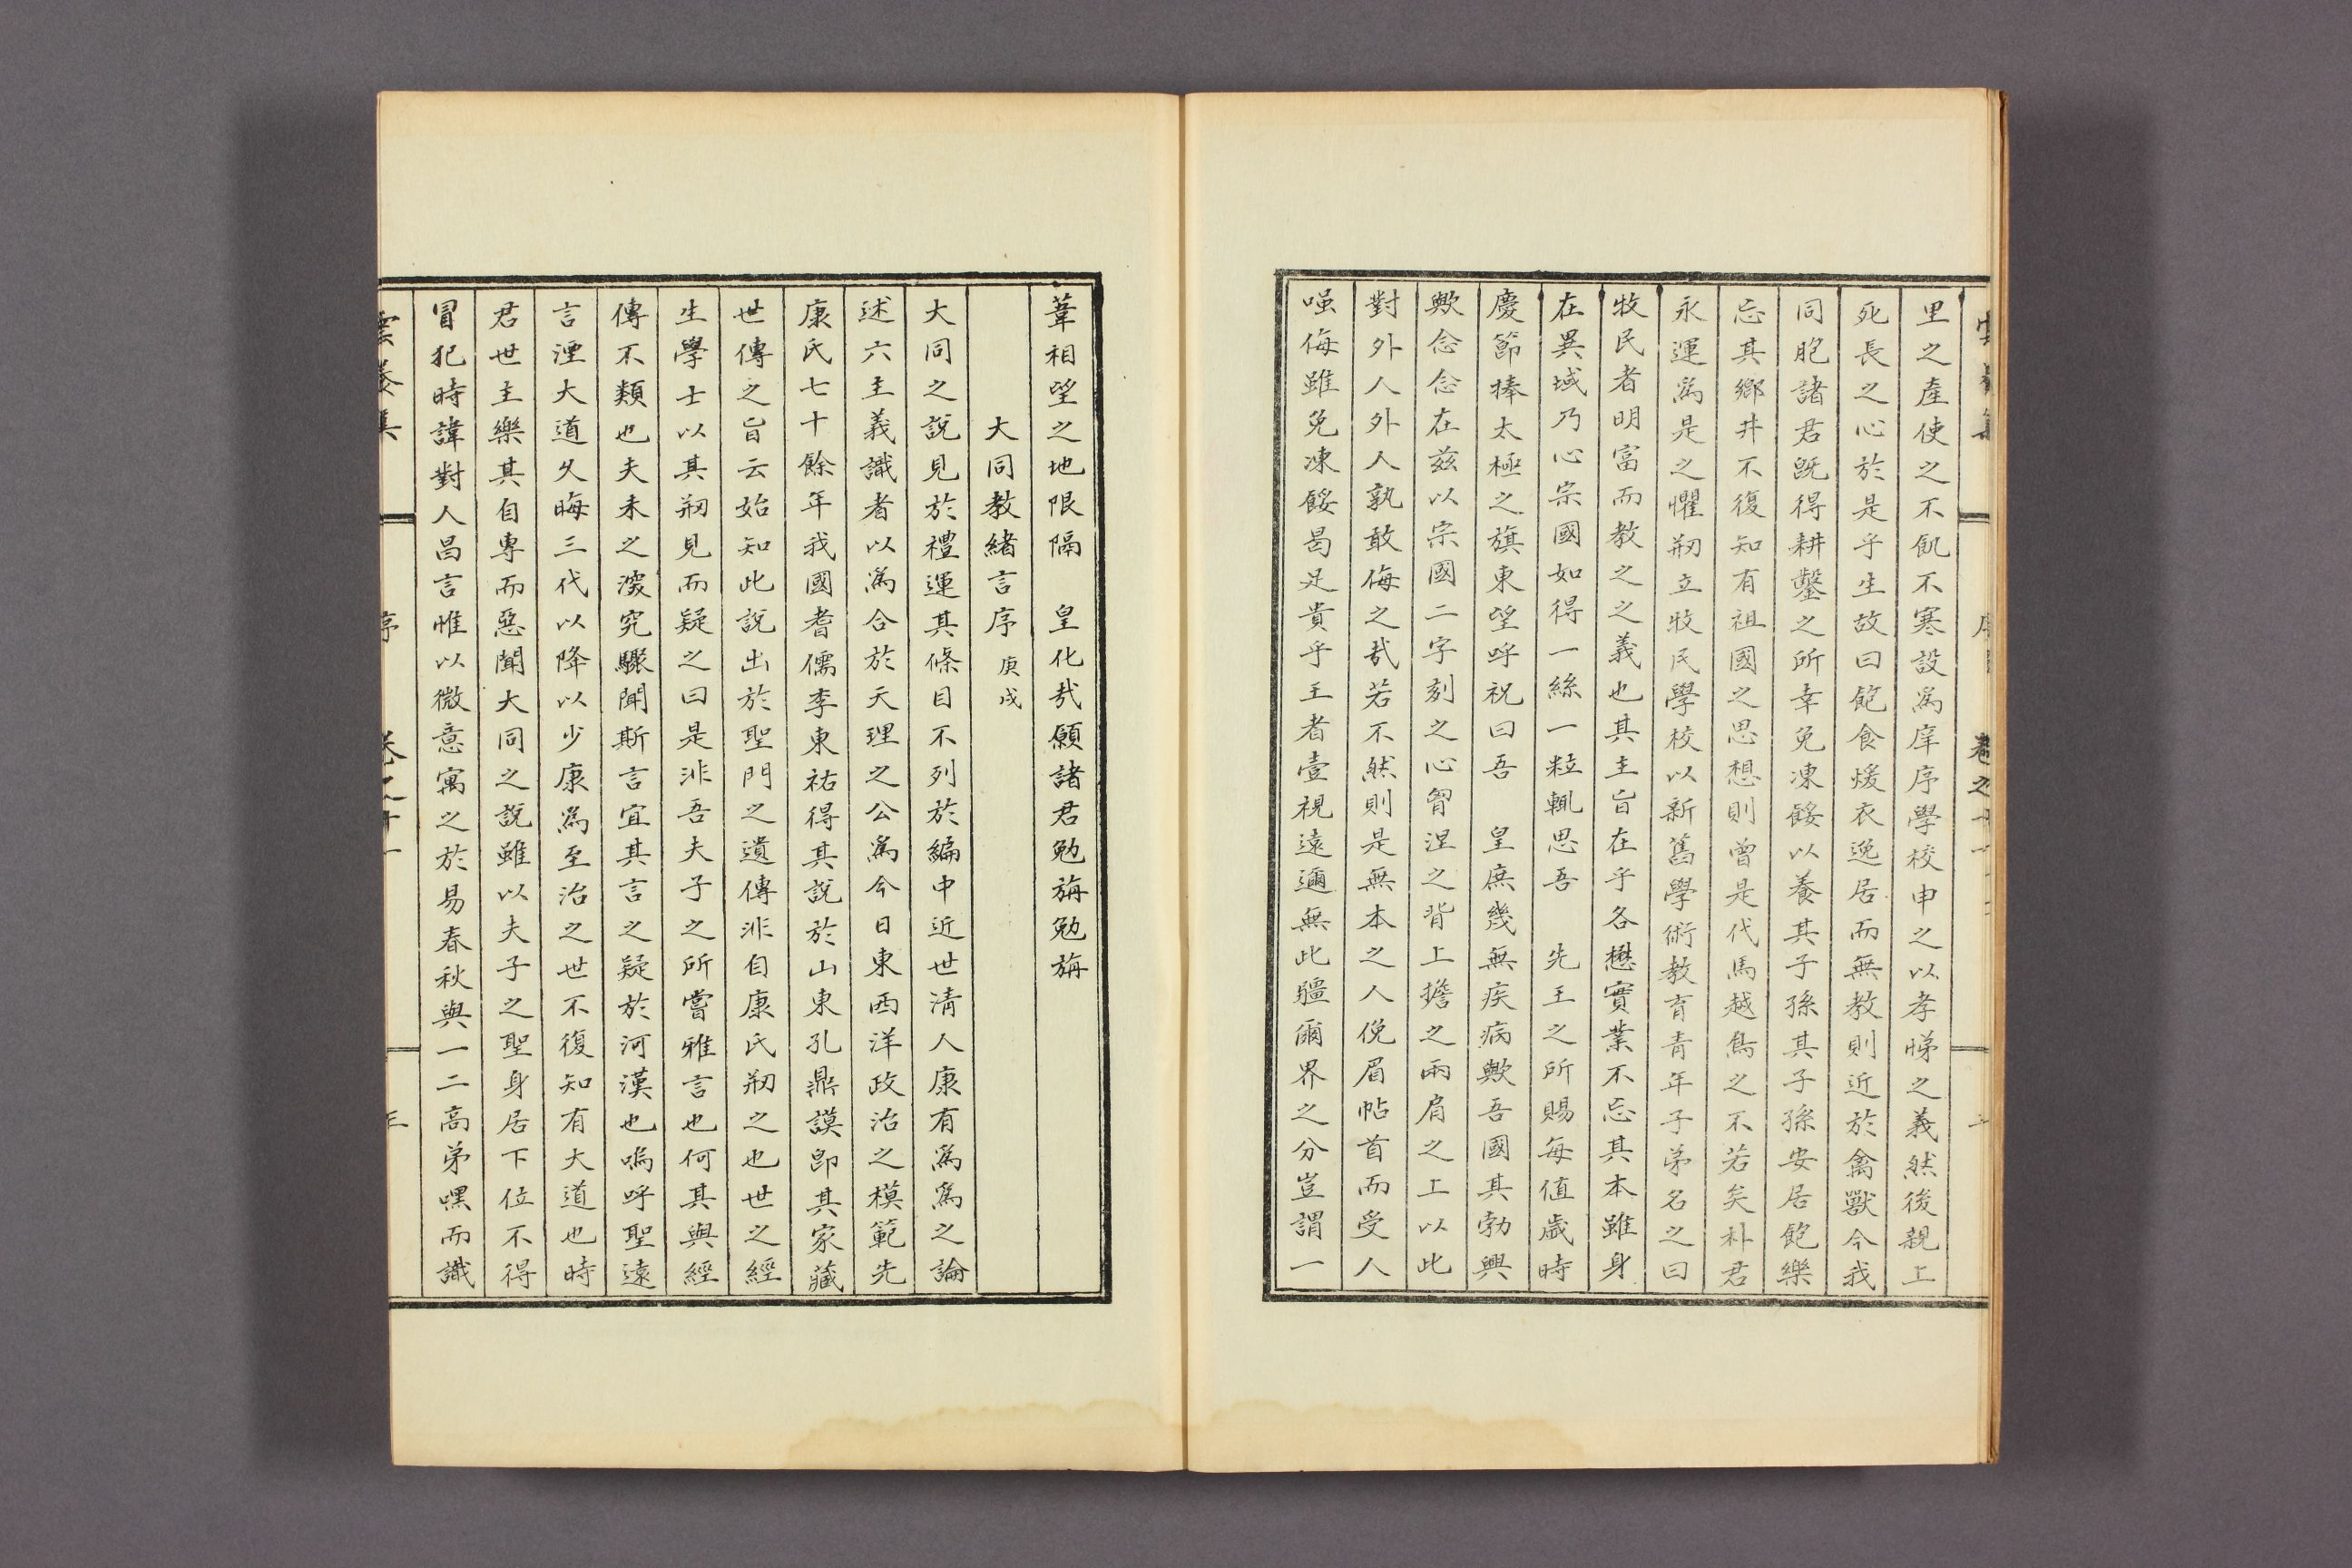 里之產使之不飢不寒設爲庠序學校申之以孝悌之義然後親上
死長之心於是乎生故曰飽食煖衣逸居而無教則近於禽獸今我
同胞諸君旣得耕鑿之所幸免凍餒以養其子孫其子孫安居飽樂
忘其鄉井不復知有祖國之思想則曾是代馬越鳥之不若矣朴君
永運爲是之懼刱立牧民學校以新舊學術教育青年子弟名之曰
牧民者明富而教之之義也其主旨在乎各懋實業不忘其本雖身
在異域乃心宗國如得一絲一粒輒思吾 先王之所賜每值歲時
慶節捧太極之旗東望呼祝曰吾 皇庶幾無疾病歟吾國其勃興
歟念念在茲以宗國二字刻之心胷涅之背上擔之兩肩之上以此
對外人外人孰敢侮之哉若不然則是無本之人俛眉帖首而受人
嗤侮雖免凍餒曷足貴乎王者壹視遠邇無此疆爾界之分豈謂一
葦相望之地限隔 皇化哉願諸君勉旃勉旃
大同教緒言序 庚戌
大同之說見於禮運其條目不列於編中近世淸人康有爲爲之論
述六主義識者以爲合於天理之公爲今日東西洋政治之模範先
康氏七十餘年我國耆儒李東祐得其說於山東孔鼎謨卽其家藏
世傳之旨云始知此說出於聖門之遺傳非自康氏刱之也世之經
生學士以其刱見而疑之曰是非吾夫子之所嘗雅言也何其與經
傳不類也夫未之深究驟聞斯言宜其言之疑於河漢也嗚呼聖遠
言湮大道久晦三代以降以少康爲至治之世不復知有大道也時
君世主樂其自專而惡聞大同之說雖以夫子之聖身居下位不得
冒犯時諱對人昌言惟以微意寓之於易春秋與一二高弟嘿而識
雲養集 序 卷之十一